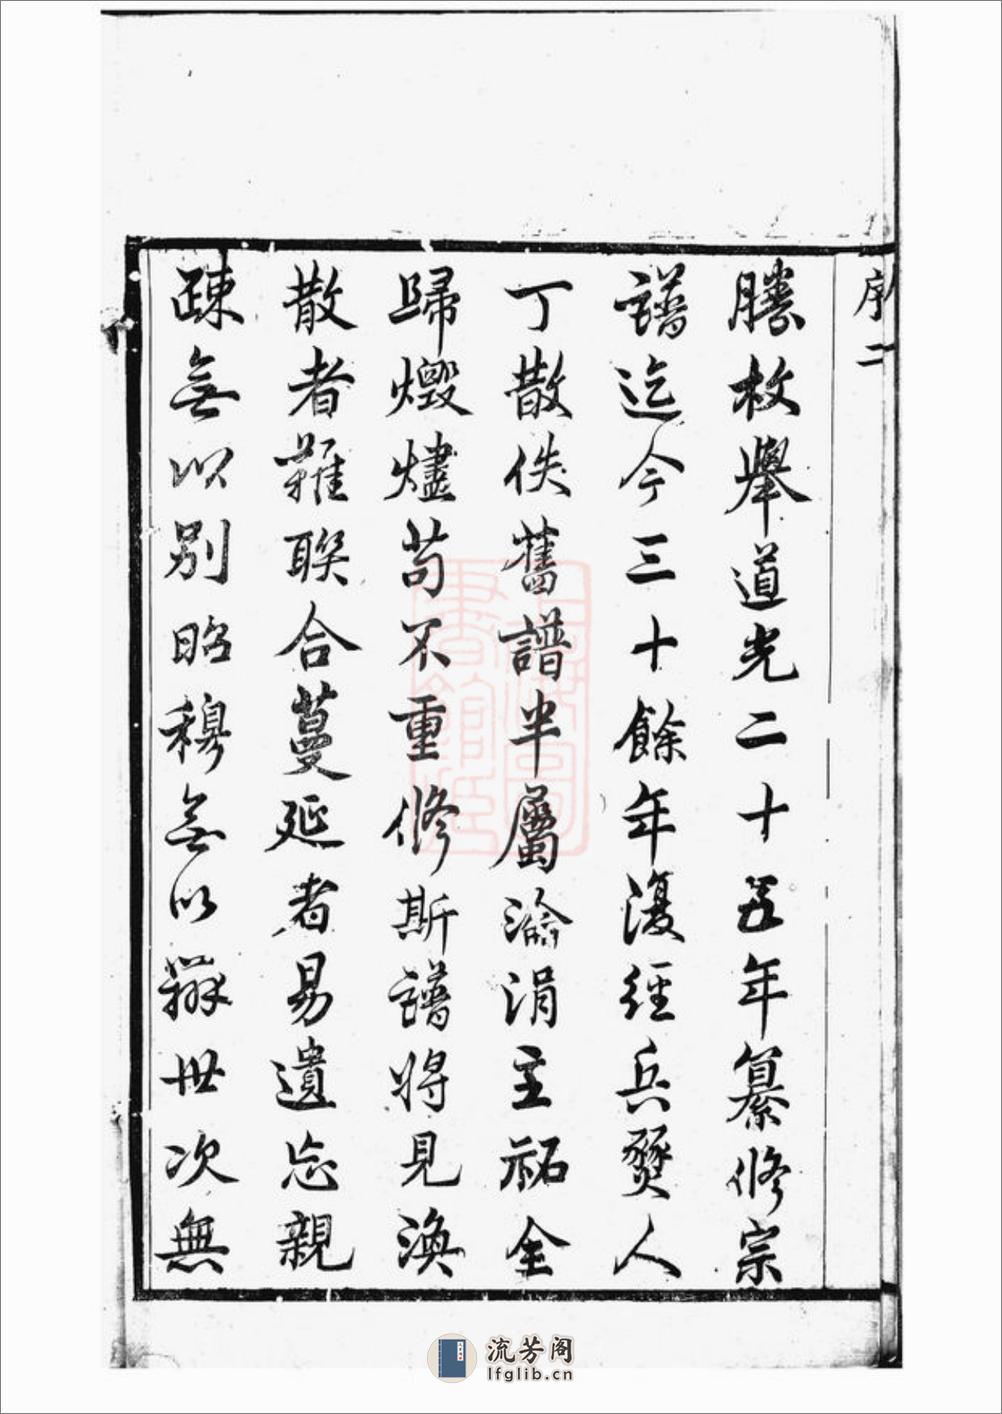 序二
勝枚舉道光二十五年纂修宗
譜迄今三十餘年復經兵燹人
丁散佚舊譜半屬淪涓主祏全
歸燬燼苟不重修斯譜將見渙
散者難聯合蔓延者易遺忘親
疎無以別昭穆無以辨世次無
上海圖
書館藏
流芳阁
lfglib.cn